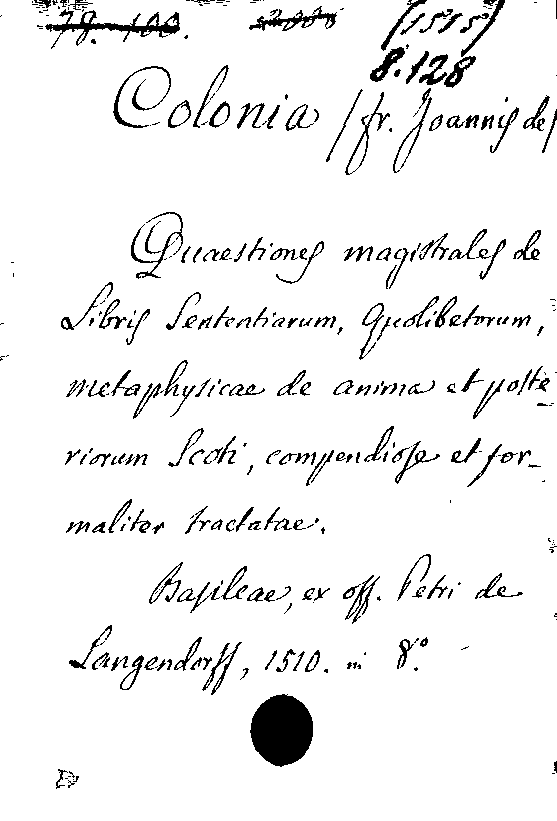 78. 100. (1515)
8.128
Colonia (fr. Joannis de)
Quaestiones magistrales de
Libris Sententiarum, Quolibetorum,
metaphysicae de anima et poste
riorum Scoti, compendiose et for-
maliter tractatae.
Basileae, ex off. Petri de
Langendorff, 1510. in 8.º